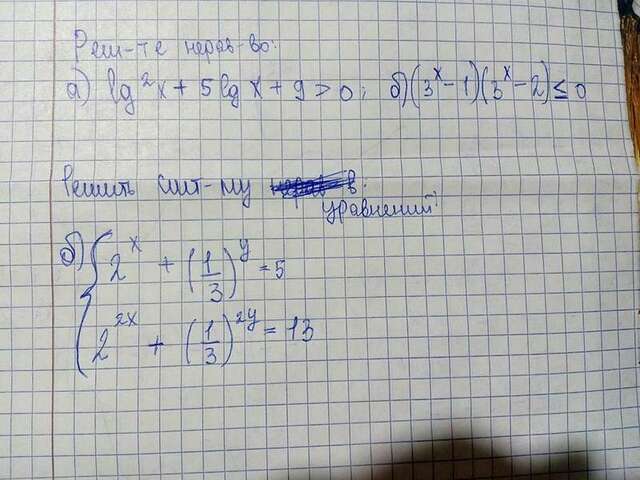 Реш-те нерав-во:
а) lg²x + 5lg x + 9 > 0; б) (3^x - 1)(3^x - 2) ≤ 0
Решить сист-му
уравнений:
б) { 2^x + (1/3)^y = 5
2^2x + (1/3)^2y = 13